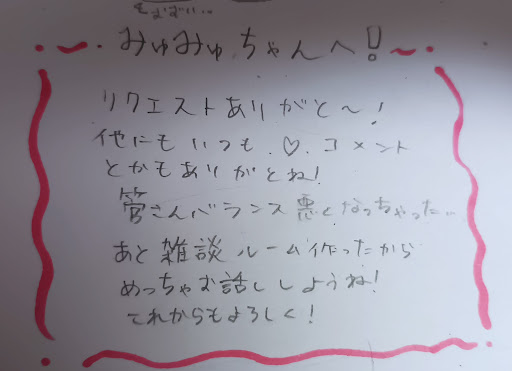 みゅみゅちゃんへ!
リクエストありがと〜!
他にもいつも♡、コメント
とかもありがとね!
菅さんバランス悪くなっちゃった…
あと雑談ルーム作ったから
めっちゃお話ししようね!
これからもよろしく!